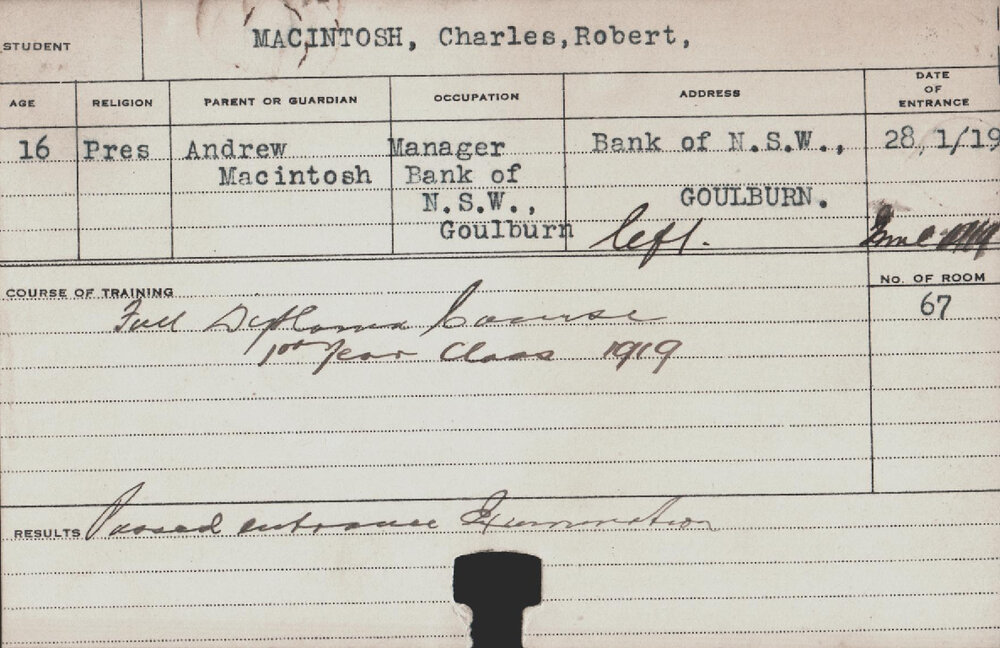 STUDENT MACINTOSH, Charles,Robert,
AGE RELIGION PARENT OR GUARDIAN OCCUPATION ADDRESS DATE OF ENTRANCE
16 Pres Andrew Manager Bank of N.S.W., 28, 1/19
Macintosh Bank of
N.S.W., GOULBURN.
Goulburn left. June 1919
COURSE OF TRAINING No. OF ROOM
Full Diploma Course 67
1st Year Class 1919
RESULTS Passed entrance Examination